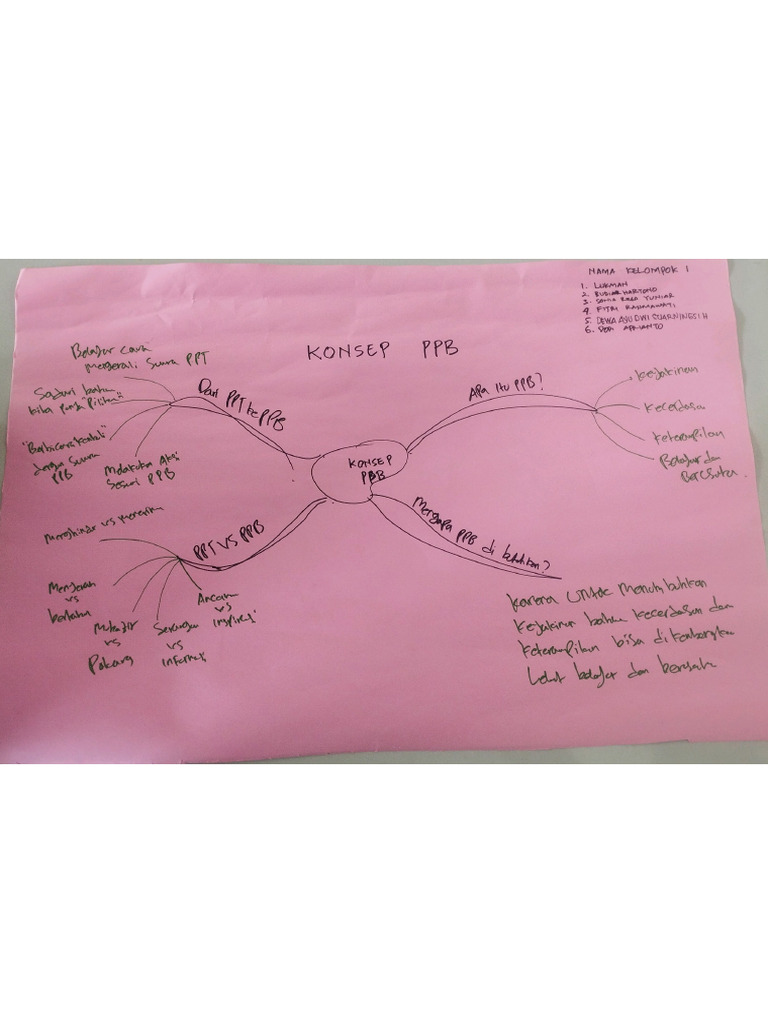 NAMA KELOMPOK 1
1. LUKMAN
2. BUDIAR HARTONO
3. YUNIAR
4. FITRI RAHMAWATI
5. DEWA AYU DWI SUARNINGSIH
6. APRIANTO
KONSEP PPB
Belajar cara
mengenali Suara PPT
Sadari bahwa
kita punya "Pilihan"
"Berbicara Kembali"
dengan Suara
PPB
Melakukan Aksi
Sesuai PPB
Dari PPT ke PPB
KONSEP
PBB
Apa itu PPB?
Keyakinan
Kecerdasan
Keterampilan
Belajar dan
Berusaha
PPT VS PPB
Menghindar vs Menerima
Menyerah
vs
bertahan
vs
Serangan
vs
informasi
Ancaman
vs
inspirasi
Mengapa PPB di butuhkan?
Karena untuk menumbuhkan
Keyakinan bahwa kecerdasan dan
Keterampilan bisa dikembangkan
Lewat belajar dan berusaha